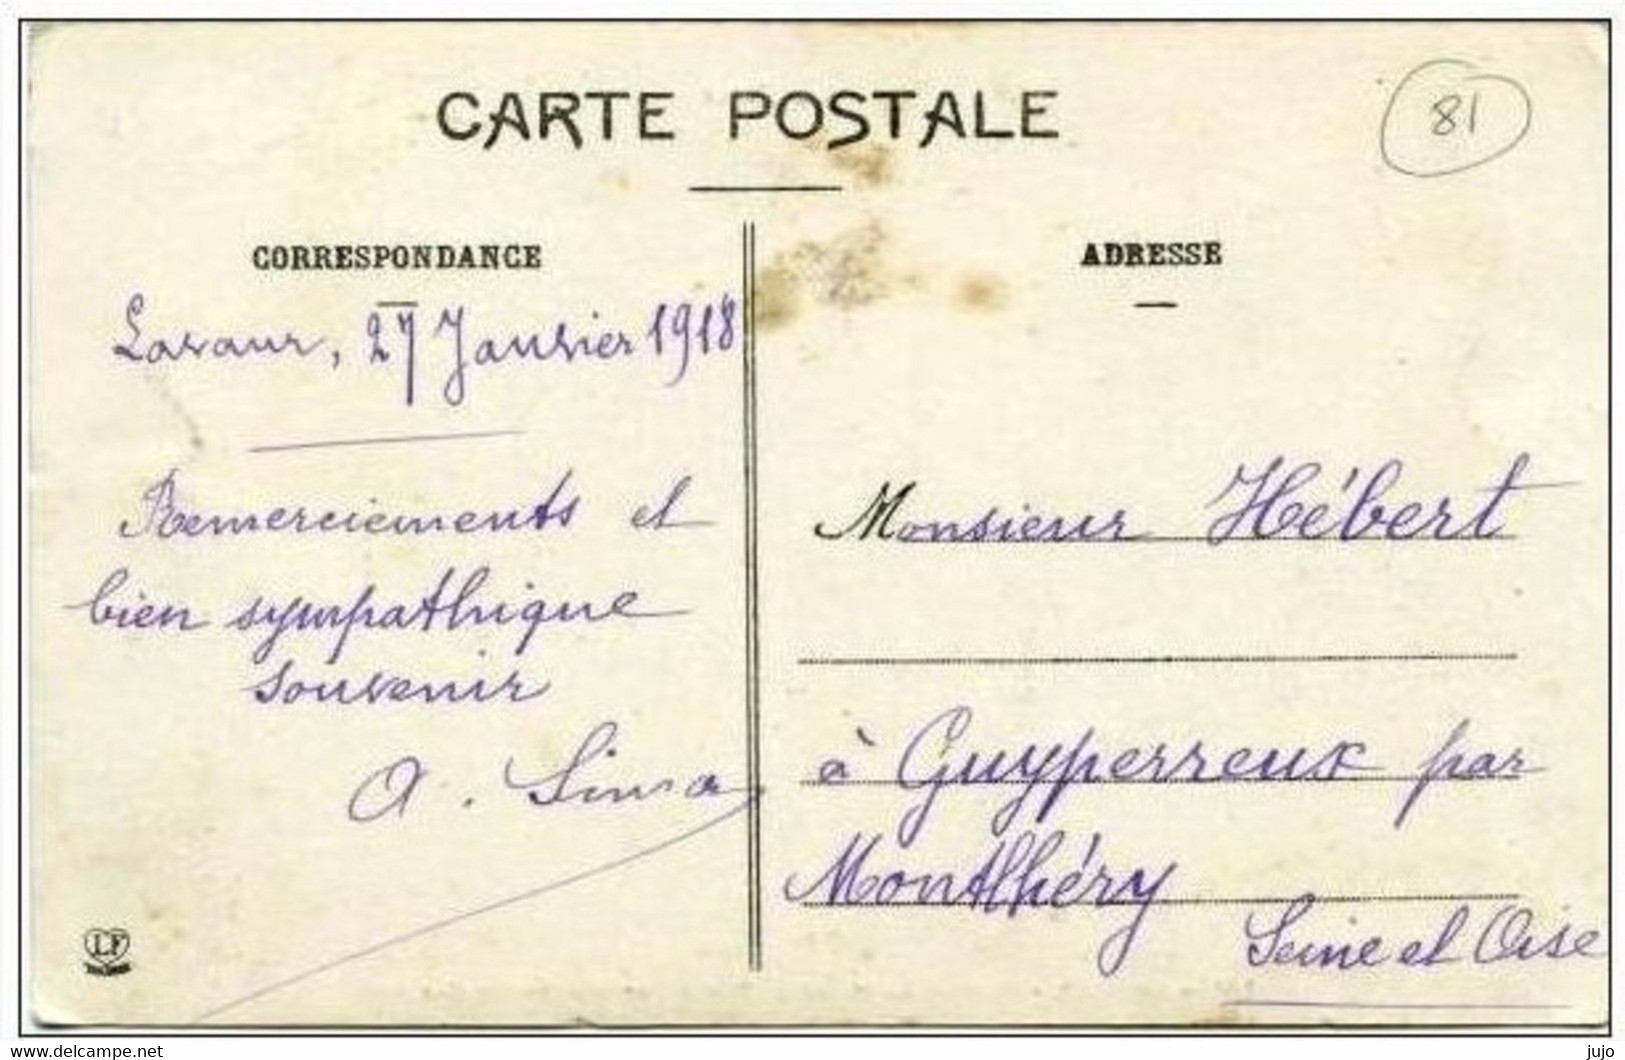 CARTE POSTALE
81
CORRESPONDANCE
Lavaur, 27 Janvier 1918
Remerciements et
bien sympathique
souvenir
A. Sima
ADRESSE
Monsieur Hébert
à Guyperreux par
Montlhéry
Seine et Oise
LF
www.delcampe.net
jujo